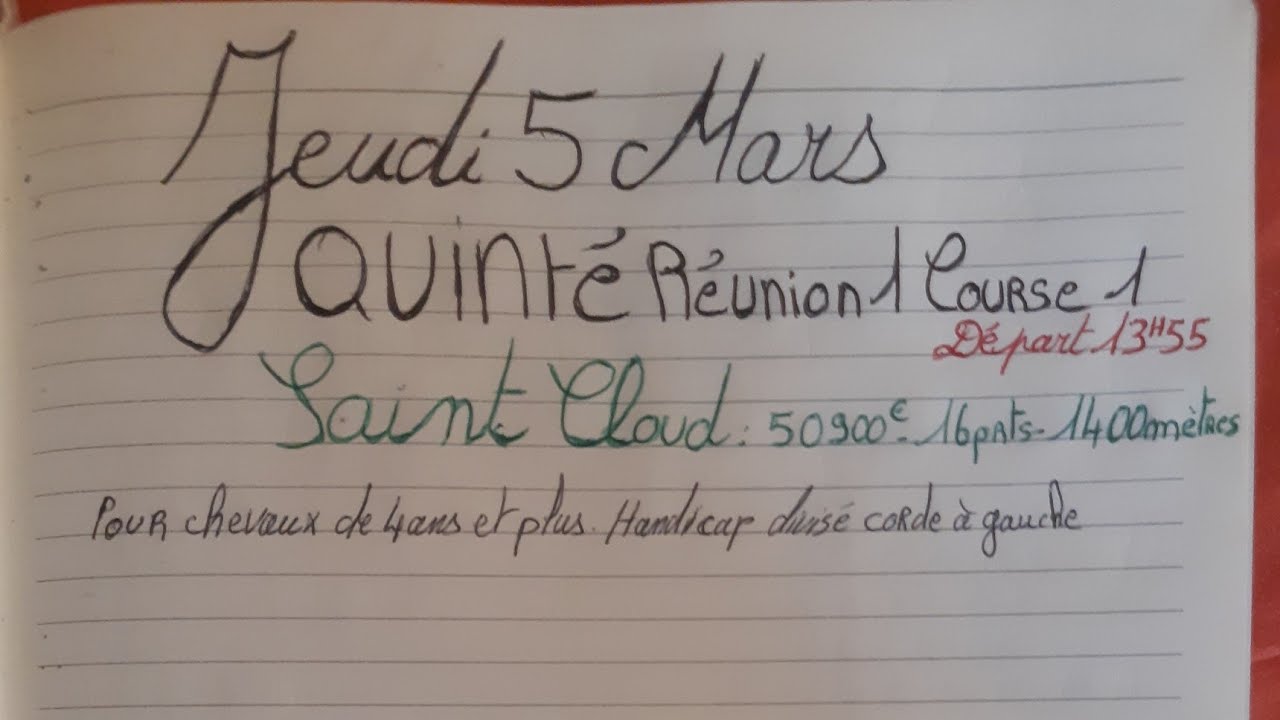 Jeudi 5 Mars
QUINTÉ Réunion 1 Course 1
Départ 13H55
Saint Cloud : 50900€ - 16 parts - 1400 mètres
Pour chevaux de 4 ans et plus. Handicap divisé corde à gauche